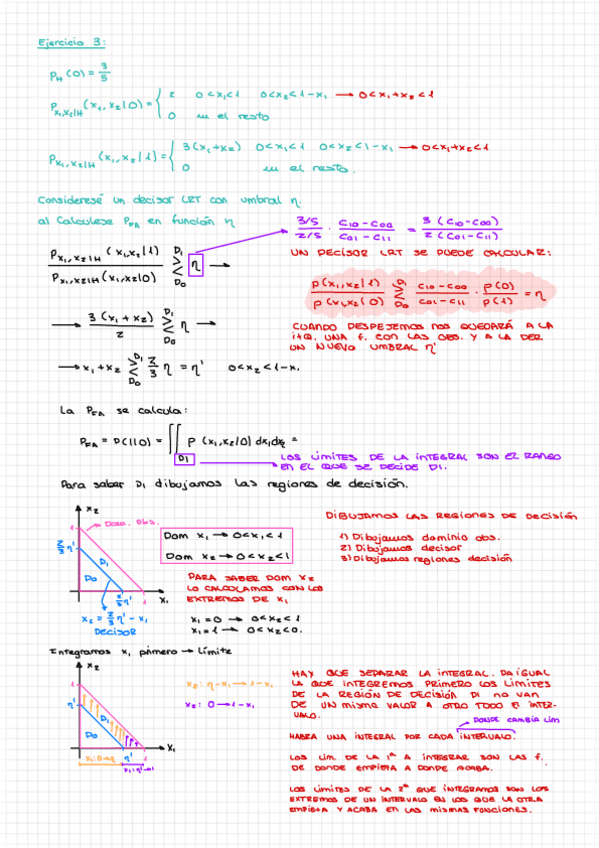 Ejercicio 3:
P_H(0) = 3/5
P_{X1,X2|H}(x1, x2|0) = { 2 0<x1<1 0<x2<1-x1 → 0<x1+x2<1
0 en el resto
P_{X1,X2|H}(x1, x2|1) = { 3(x1+x2) 0<x1<1 0<x2<1-x1 → 0<x1+x2<1
0 en el resto.
Considerese un decisor LRT con umbral η.
a) Calculese P_FA en función η
3/5 / 2/5 · (C10-C00)/(C01-C11) = 3(C10-C00)/2(C01-C11)
P_{X1,X2|H}(x1,x2|1) / P_{X1,X2|H}(x1,x2|0) ≷ D1 D0 η →
UN DECISOR LRT SE PUEDE CALCULAR:
p(x1,x2|1) / p(x1,x2|0) ≷ D1 D0 (C10-C00)/(C01-C11) · p(0)/p(1) = η
→ 3(x1+x2)/2 ≷ D1 D0 η →
CUANDO DESPEJEMOS NOS QUEDARÁ A LA
ITQ. UNA F. CON LAS OBS. Y A LA DER
UN NUEVO UMBRAL η'
→ x1+x2 ≷ D1 D0 2/3 η = η' 0<x2<1-x1
La P_FA se calcula:
P_FA = P(1|0) = ∬ D1 p(x1,x2|0) dx1dx2 =
LOS LIMITES DE LA INTEGRAL SON EL RANGO
EN EL QUE SE DECIDE D1.
Para saber D1 dibujamos las regiones de decisión.
x2
1
Dom. Obs.
2/3 η'
D1
D0
2/3 η'
1
x1
x2 = 2/3 η' - x1
DECISOR
Dom x1 → 0<x1<1
Dom x2 → 0<x2<1
PARA SABER DOM X2
LO CALCULAMOS CON LOS
EXTREMOS DE X1
x1=0 → 0<x2<1
x1=1 → 0<x2<0.
DIBUJAMOS LAS REGIONES DE DECISIÓN
1) Dibujamos dominio obs.
2) Dibujamos decisor
3) Dibujamos regiones decisión
Integramos x1 primero → Límite
x2
1
η'
D1
D0
η'
1
x1
x2: η-x1 → 1-x1
x2: 0 → 1-x1
HAY QUE SEPARAR LA INTEGRAL. DA IGUAL
LA QUE INTEGREMOS PRIMERO LOS LIMITES
DE LA REGIÓN DE DECISIÓN D1 NO VAN
DE UN MISMO VALOR A OTRO TODO EL INTER-
VALO.
DONDE CAMBIA LIM
HABRA UNA INTEGRAL POR CADA INTERVALO.
LOS LIM. DE LA 1ª A INTEGRAR SON LAS F.
DE DONDE EMPIEZA A DONDE ACABA.
LOS LIMITES DE LA 2ª QUE INTEGRAMOS SON LOS
EXTREMOS DE UN INTERVALO EN LOS QUE LA OTRA
EMPIEZA Y ACABA EN LAS MISMAS FUNCIONES.